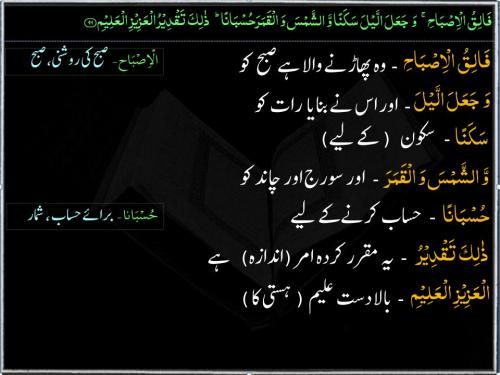 فَالِقُ الْاِصْبَاحِ ۚ وَ جَعَلَ الَّيْلَ سَكَنًا وَّ الشَّمْسَ وَ الْقَمَرَ حُسْبَانًا ؕ ذٰلِكَ تَقْدِيْرُ الْعَزِيْزِ الْعَلِيْمِ ﴿۹۶﴾
فَالِقُ الْاِصْبَاحِ - وہ پھاڑنے والا ہے صبح کو
الْاِصْبَاح - صبح کی روشنی، صبح
وَ جَعَلَ الَّيْلَ - اور اس نے بنایا رات کو
سَكَنًا - سکون (کے لیے)
وَّ الشَّمْسَ وَ الْقَمَرَ - اور سورج اور چاند کو
حُسْبَانًا - حساب کرنے کے لیے
حُسْبَانا - برائے حساب، شمار
ذٰلِكَ تَقْدِيْرُ - یہ مقرر کردہ امر (اندازہ) ہے
الْعَزِيْزِ الْعَلِيْمِ - بالادست علیم (ہستی کا)